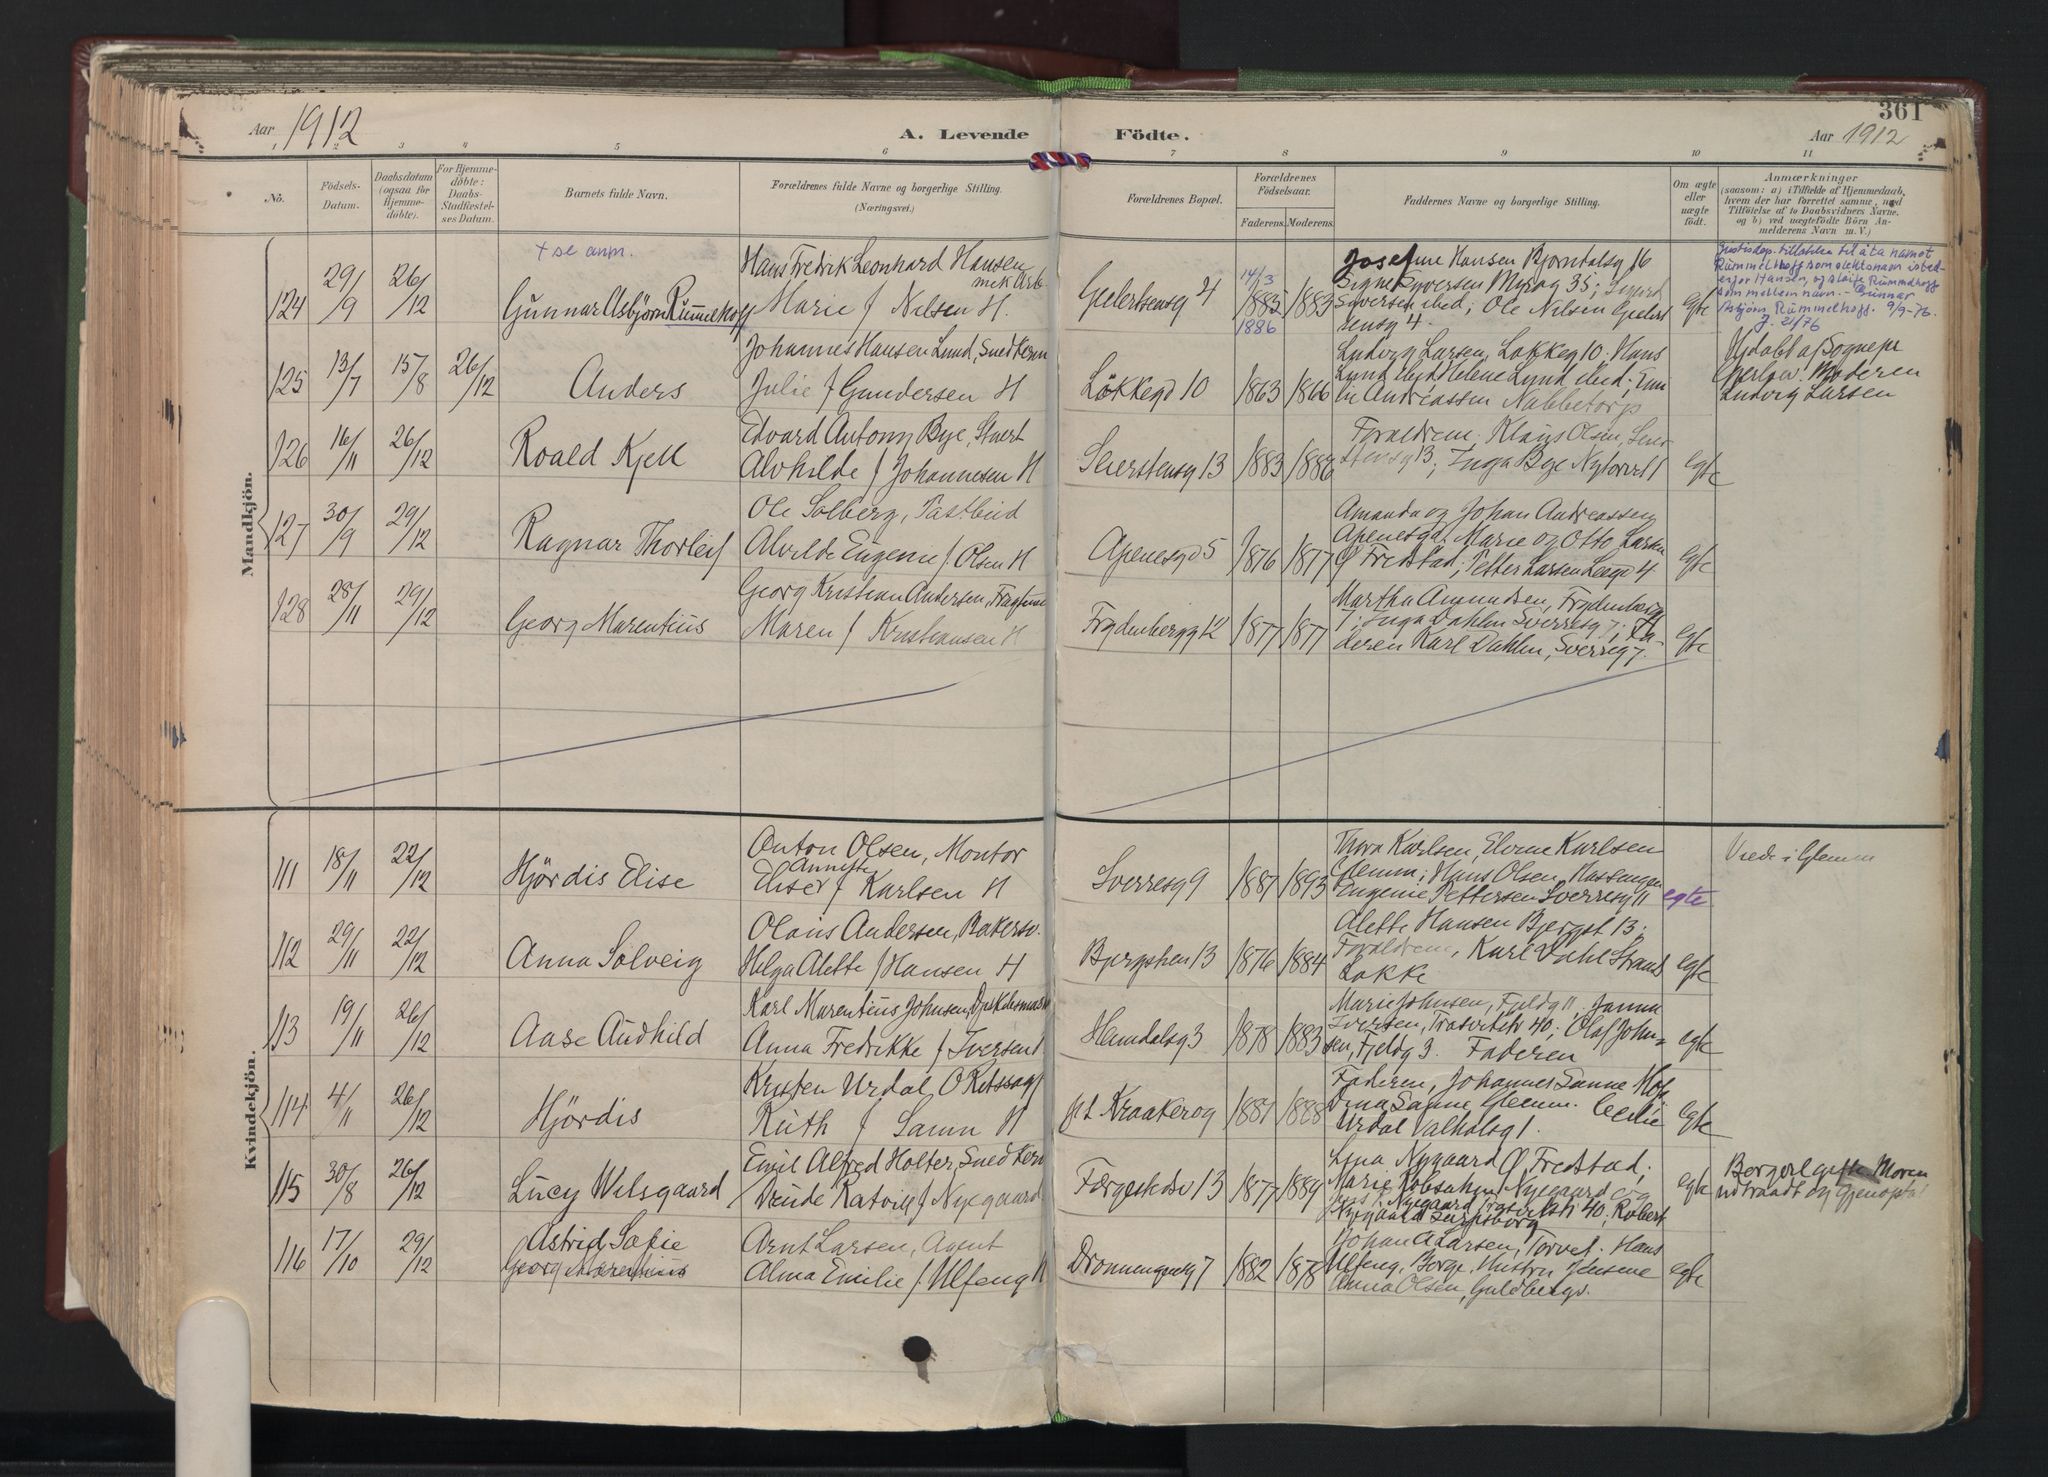 361
Aar 1912
A. Levende Födte.
Aar 1912
1 2 3 4 5 6 7 8 9 10 11
No.
Födsels-Datum.
Daabsdatum (ogsaa for Hjemme-döbte).
For Hjemme-döbte: Daabs-Stadfæstel-ses Datum.
Barnets fulde Navn.
Forældrenes fulde Navne og borgerlige Stilling.
(Næringsvei.)
Forældrenes Bopæl.
Forældrenes Födselsaar.
Faderens. Moderens.
Faddernes Navne og borgerlige Stilling.
Om ægte eller uægte födt.
Anmærkninger
(saasom: a) i Tilfælde af Hjemmedaab,
hvem der har forrettet samme, med
Tilföielse af to Daabsvidners Navne,
og b) ved uægtefödte Börn An-
melderens Navn m. V.)
Mandkjön.
124 29/9 26/12
+ se anm.
Gunnar Asbjörn Rummelhoff
Hans Fredrik Leonhard Hansen
mek Arb
Marie f Nilsen H.
Gielertsensg 4
14/3 1885 1886
1883
Josefine Hansen Bjorntalsg 16
Signe Syversen Myrag 35; Sigurd
Syversen ibid; Ole Nilsen Gielert
sensg 4.
Egte
Justisdep. tillatelse til å ta namnet
Rümmelhoff som slektsnam isted-
enfor Hansen, og sløife Rümmelhoff
som mellem navn. - Gunnar
Asbjörn Rümmelhoff. 9/9-76.
J. 21/76
125 13/7 15/8 26/12
Anders
Johannes Hansen Lund, Snedkerm
Julie f Gundersen H
Løkkegd 10
1863 1866
Ludvig Larsen, Løkkeg 10. Hans
Lund ibid, Helene Lund ibid; Emi
lie Andreassen Nabbetorp
Hjdøbt af Sognepr
Gerlow: Moderen
Ludvig Larsen
126 16/11 26/12
Roald Kjell
Edvard Antony Bye, Stuert
Alvhilde f Johannesen H
Seierstensg 13
1883 1886
Forældrene, Klaus Olsen, Seier
stensg 13; Inga Bye Nytorvet 1
Egte
127 30/9 29/12
Ragnar Thorleif
Ole Solberg, Pastbud
Alvilde Eugenie f. Olsen H
Apenesgd 5
1876 1877
Amanda og Johan Andreassen
Apenesga, Marie og Otto Larsen
Ø Fredstad; Petter Larsen Leegd 4
Egte
128 28/11 29/12
Georg Marentius
Georg Kristian Andersen, Fragtman
Maren f Kristiansen H
Frydenbergg 12
1877 1877
Martha Amundsen, Frydenberg
7; Inga Dahlen Sverresg 7; Fa-
deren Karl Dahlen, Sverreg 7.
Egte
Kvindekjön.
111 18/11 22/12
Hjördis Elise
Anton Olsen, Montör
Annette
Elise f Karlsen H
Sverresg 9
1887 1893
Thora Karlsen, Elvine Karlsen
Glemm; Hans Olsen, Hassengen
Eugenie Pettersen Sverresg 11
egte
Viede i Glemm
112 29/11 22/12
Anna Solveig
Olaus Andersen, Bakersv.
Helga Alette f Hansen H
Bjergstien 13
1876 1884
Alette Hansen Bjergst 13;
Forældrene, Karl Dahl Strand
Løkke
Egte
113 19/11 26/12
Aase Audhild
Karl Marentius Johnsen, Dyrkebsmann
Anna Fredrikke f Iversen
Hamdalsg 3
1878 1883
Marie Johnsen, Fjeldg 11, Janna
Iversen, Trosvikstr 40; Olaf John
sen, Fjeldg 3. Faderen
Egte
114 4/11 26/12
Hjördis
Kristen Urdal O Retssagf
Ruth f Sann H
pt. Kraakerøg
1881 1888
Faderen, Johannes Sanne Mob
Dina Sanne Glemm. Cecilie
Urdal Valhalsg 1.
Egte
115 30/8 26/12
Lucy Welsgaard
Emil Alfred Holter, Snedkerm
f Nyegaard
Færgestedsv 13
1877 1889
Lina Nygaard Ø Fredstad;
Marie Robsahm Nyegaard og
Nyegaard Trosvikstr 40; Robert
Nygaard Sarpsborg
Egte
Borgerl gifte Moren
udtraadt og gjenoptat
116 17/10 29/12
Astrid Sofie
Georg Marentius
Arnt Larsen, Agent
Alma Emilie f Ulfeng H
Dronningensg 7
1882 1878
Johan A Larsen, Torvet. Hans
Ulfeng, Borge. Hustru Jensine
Anna Olsen, Guldbergs.
Egte